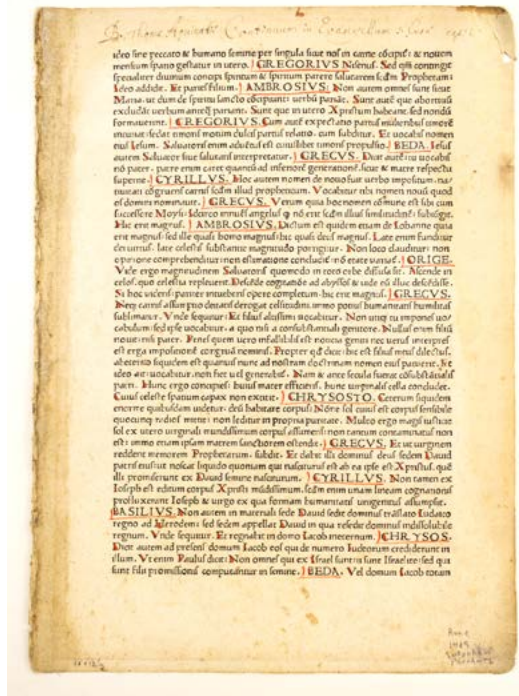 B. Thome Aquinatis Continuum in Evangelium
ideo sine peccato & humano semine per singula sicut nos in carne cõcipit: & nouem
mensium spatio gestatur in utero. GREGORIVS Nisenus. Sed qm̃ contingit
specialiter diuinum concipi spiritum & spiritum parere salutarem scdm Prophetam:
Ideo addidit. Et paries filium. AMBROSIVS. Non autem omnes sunt sicut
Maria: ut dum de spiritu sancto cõcipiant: uerbũ pariãt. Sunt autẽ que abortiuũ
excludãt uerbum anteq̃ pariant. Sunt que in utero Xpistum habeant sed nondũ
formauerint. GREGORIVS. Cum autẽ expectatio partus mulieribus timorẽ
incutiat: sedat timoris motum dulcis partus relatio. cum subditur. Et uocabis nomen
eius Iesum. Saluatoris enim aduẽtus est cuiuslibet timoris propulsio. BEDA. Iesus
autem Saluator siue salutaris interpretatur. GRECVS. Dicit autẽ: tu uocabis
nõ pater. patre enim caret quantũ ad inferiorẽ generationẽ. sicut & matre respectu
superne. CYRILLVS. Hoc autem nomen de nouo fuit uerbo impositum. na-
tiuitati cõgruens carnis scdm illud propheticum. Vocabitur tibi nomen nouũ quod
os domini nominauit. GRECVS. Verum quia hoc nomen cõmune est sibi cum
successore Moysi: Idcirco innuẽs angelus q nõ erit scdm illius similitudinẽ: subiũgit.
Hic erit magnus. AMBROSIVS. Dictum est quidem etiam de Iohanne quia
erit magnus: sed ille quasi homo magnus: hic quasi deus magnus. Late enim funditur
dei uirtus. late celestis substantie magnitudo porrigitur. Non loco clauditur: non
opinione comprehenditur: non estimatione concludit̃: nõ etate uariat̃. ORIGE.
Vide ergo magnitudinem Saluatoris quomodo in toto orbe diffusa sit. Ascende in
celos. quo celestia repleuerit. Descẽde cogitatiõe ad abyssos: & uide eũ illuc descẽdisse.
Si hoc uideris: pariter intueberis opere completum: hic erit magnus. GRECVS.
Neq carnis assumptio deitatis derogat celsitudini. immo potius humanitatis humilitas
sublimatur. Vnde sequitur: Et filius altissimi uocabitur. Non utiq tu impones uo-
cabulum: sed ipse uocabitur. a quo nisi a consubstantiali genitore. Nullus enim filiũ
nouit: nisi pater. Penes quem uero infallibilis est noticia geniti: nec uerus interpres
est erga impositionẽ congruã nominis. Propter qd dicit: hic est filius meus dilectus.
ab eterno siquidem est quamuis nunc ad nostram doctrinam nomen eius patuerit. Et
ideo ait: uocabitur. non fiet uel generabit̃. Nam & ante secula fuerat cõsubstãtialis
patri. Hunc ergo concipies: huius mater efficieris. hunc uirginalis cella concludet.
Cuius celeste spatium capax non extitit. CHRYSOSTO. Ceterum siquidem
enorme quibusdam uidetur: deũ habitare corpus: Nõne sol cuius est corpus sensibile
quocunq radios mittit: non leditur in propria puritate. Multo ergo magis iusticie
sol ex utero uirginali mundissimum corpus assumens: non tantum contaminatus non
est: immo etiam ipsam matrem sanctiorem ostendit. GRECVS. Et ut uirginem
reddens memorem Prophetarum. subdit. Et dabit illi dominus deus sedem Dauid
patris eius: ut noscat liquido quoniam qui nascitur: ab ea ipse est Xpistus. quẽ
illi promiserunt ex Dauid semine nasciturum. CYRILLVS. Non tamen ex
Ioseph est editum corpus Xpisti mũdissimum. scdm enim unam lineam cognationis
profluxerant Ioseph & uirgo ex qua formam humanitatis unigenitus assumpsit.
BASILIVS. Non autem in materiali sede Dauid sedit dominus trãslato Iudaico
regno ad Herodem: sed sedem appellat Dauid in qua resedit dominus indissolubile
regnum. Vnde sequitur. Et regnabit in domo Iacob in eternum. CHRYSOS.
Dicit autem ad presens domum Iacob eos qui de numero Iudeorum crediderunt in
illum. Vt enim Paulus dicit: Non omnes qui ex Israel sunt: ii sunt Israelite: sed qui
sunt filii promissionis computantur in semine. BEDA. Vel domum Iacob totam
Rome